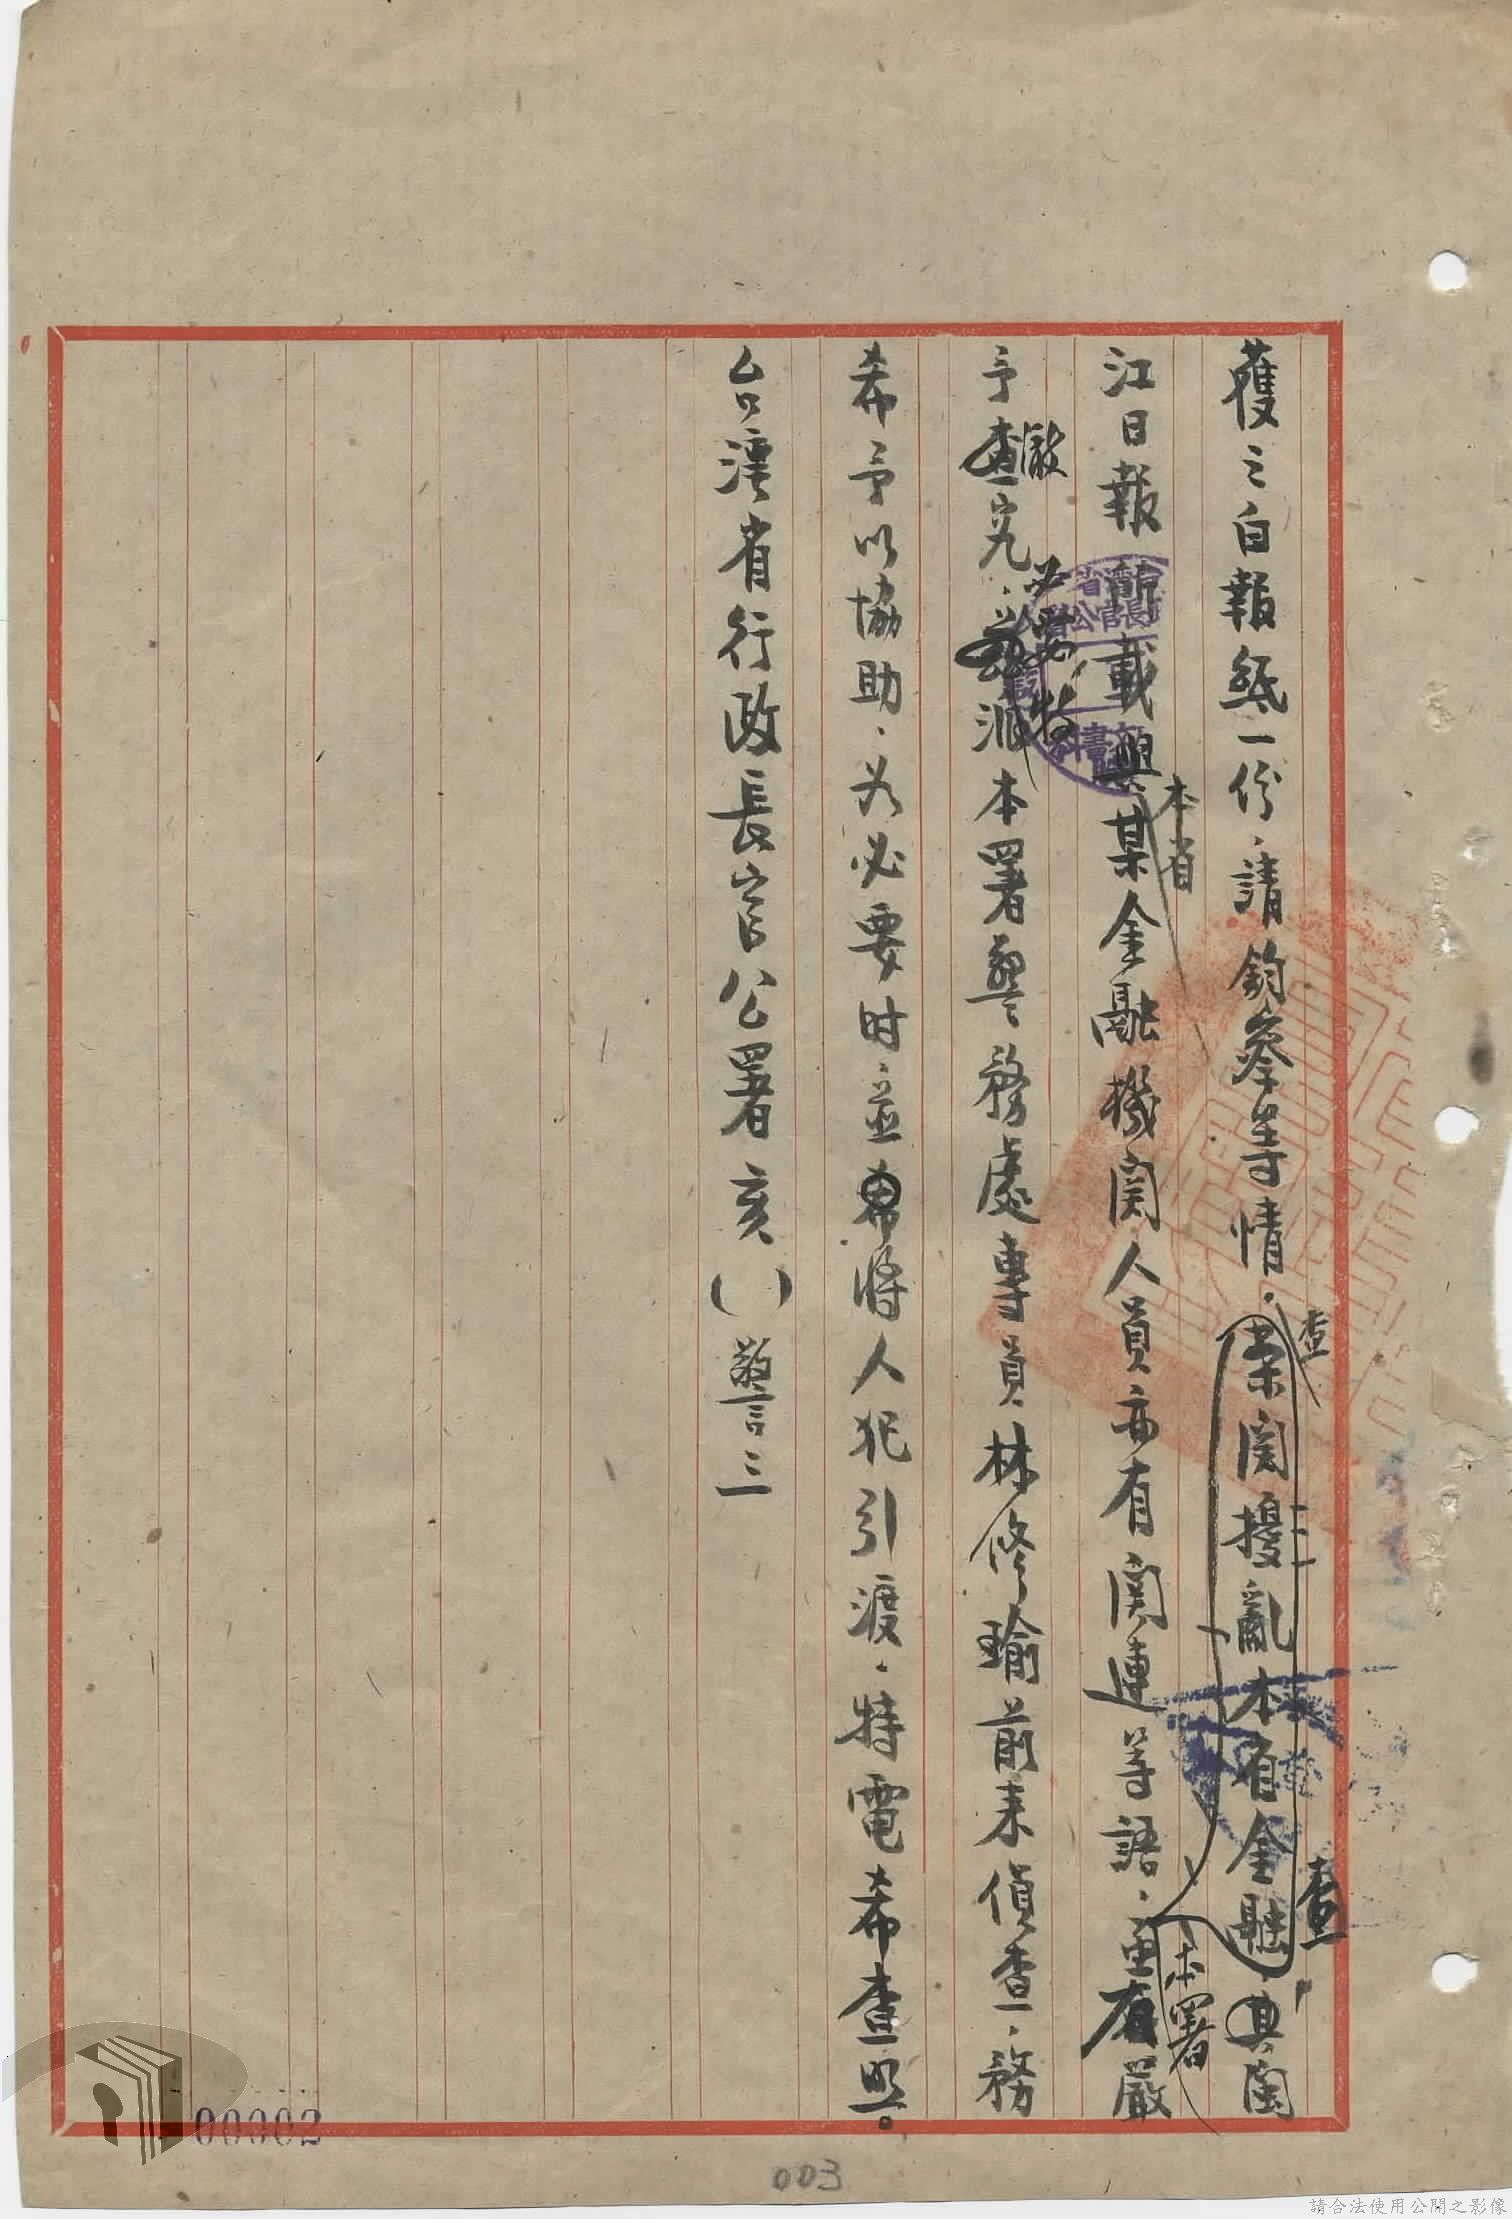 獲之白報紙一份，請鈞參等情。案関擾亂本省金融，其閩
查
查
江日報所載與某金融機関人員亦有関連等語，
嚴
本省
本署
予查究，派本署警務處專員林修瑜前来偵查，務
徹
必要
特
希予以協助，必要时並希將人犯引渡，特電希查照。
台灣省行政長官公署亥（）警三
00002
003
請合法使用公開之影像